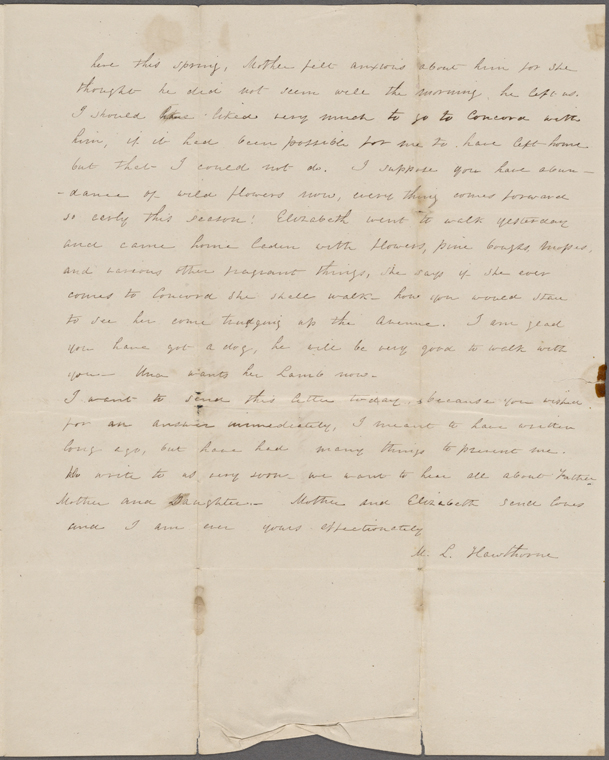 here this Spring, Mother felt anxious about him for she
thought he did not seem well the morning he left us.
I should have liked very much to go to Concord with
him, if it had been possible for me to have left home
but that I could not do. I suppose you have abun-
-dance of wild flowers now, every thing comes forward
so early this season! Elizabeth went to walk yesterday
and came home laden with flowers, pine boughs, mosses,
and various other fragrant things, she says if she ever
comes to Concord she shall walk - how you would stare
to see her come trudging up the Avenue. I am glad
you have got a dog, he will be very good to walk with
you - Una wants her Lamb now -
I want to send this letter today, because you wished
for an answer immediately, I meant to have written
long ago, but have had many things to prevent me.
Do write to us very soon - we want to hear all about Father
Mother and Daughter - Mother and Elizabeth send loves
and I am ever yours affectionately
M. L. Hawthorne